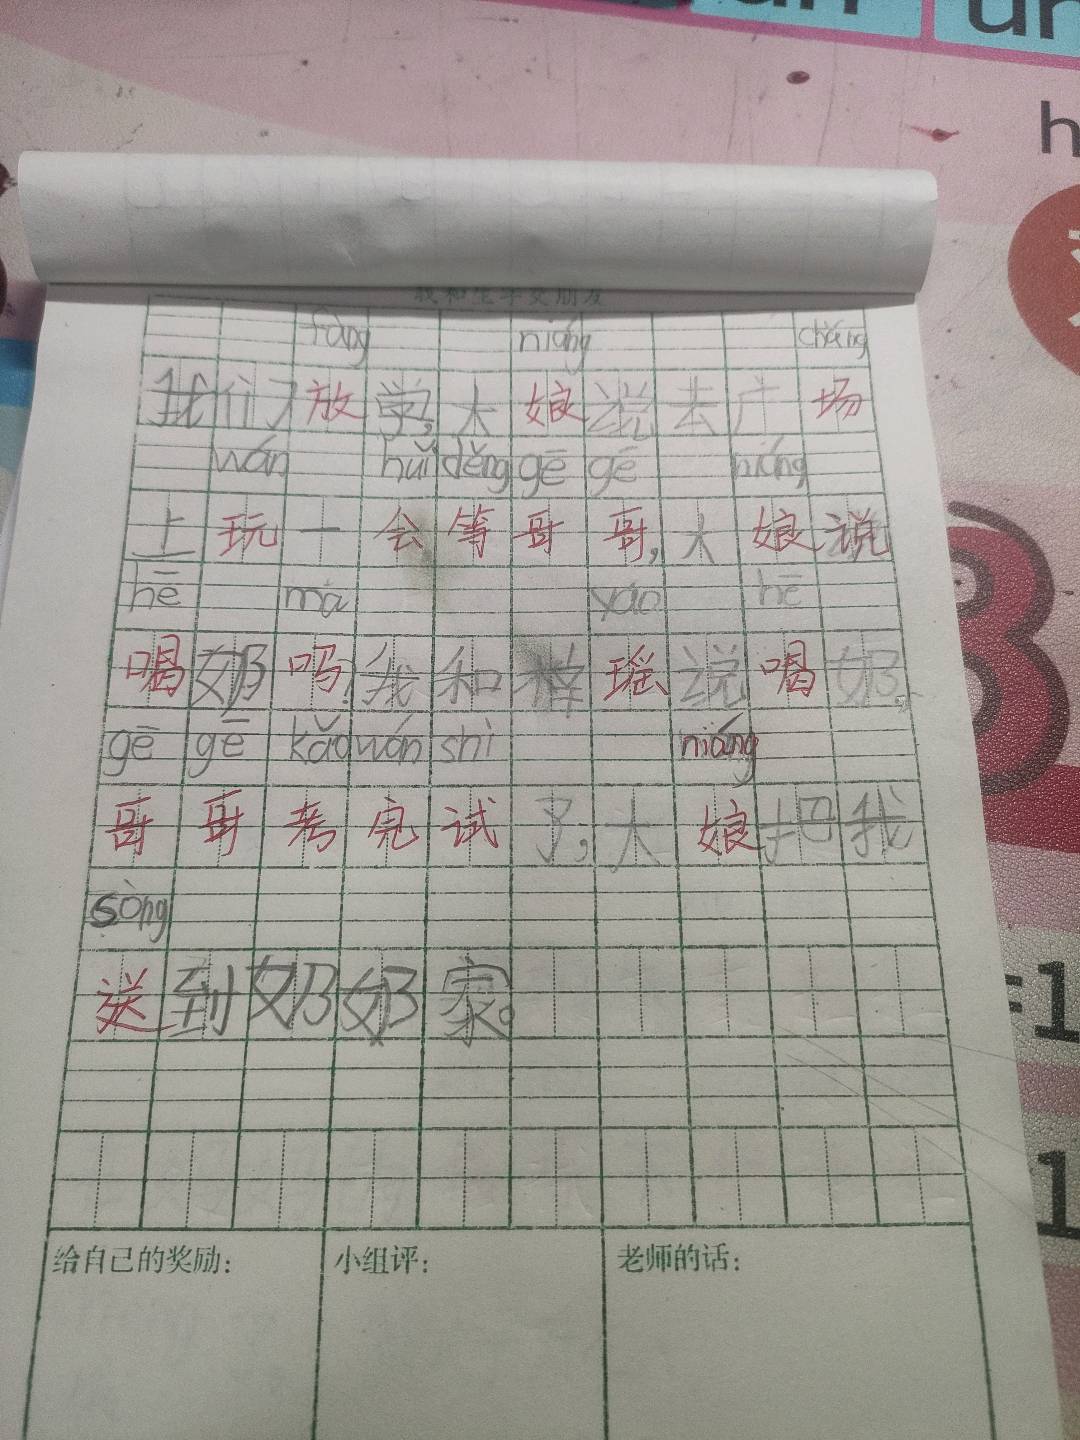 un
h
我和生字交朋友
fàng niáng chǎng
我们放学,大娘说去广场
wán huǐ děng gē gē niáng
上玩一会等哥哥,大娘说
hē mā yáo hē
喝奶吗!我和梓瑶说喝奶,
gē gē kǎo wán shì niáng
哥哥考完试了,大娘把我
sòng
送到奶奶家。
给自己的奖励: 小组评: 老师的话:
8
=1
1